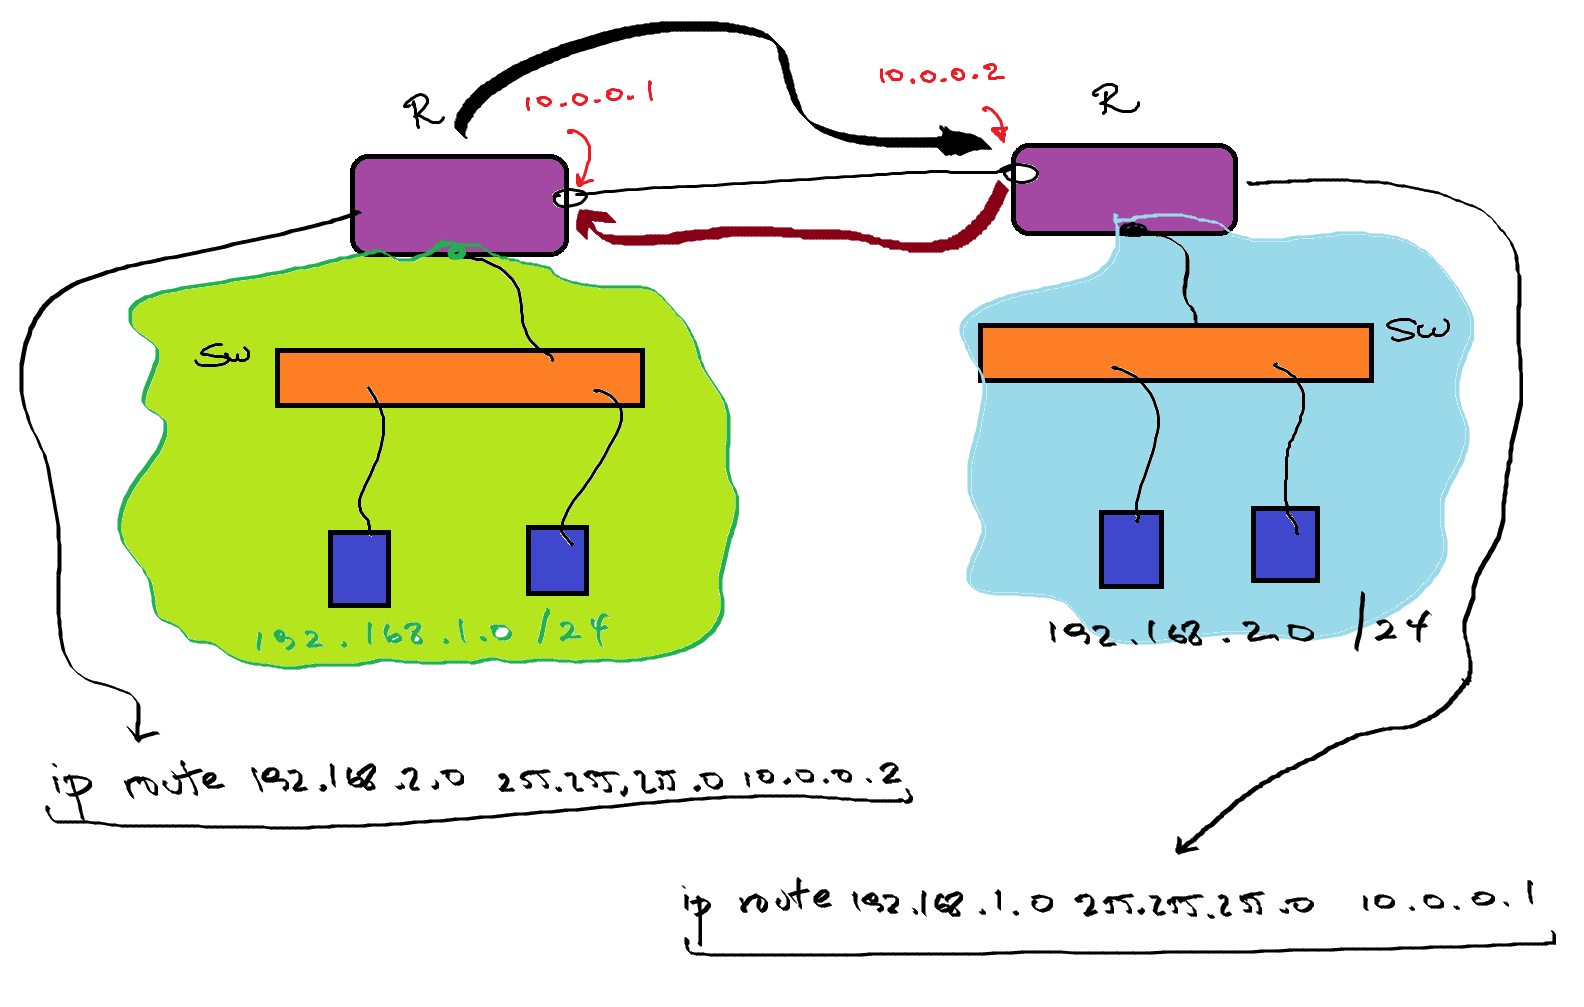 R
10.0.0.1
10.0.0.2
R
SW
SW
192.168.1.0 /24
192.168.2.0 /24
ip route 192.168.2.0 255.255.255.0 10.0.0.2
ip route 192.168.1.0 255.255.255.0 10.0.0.1